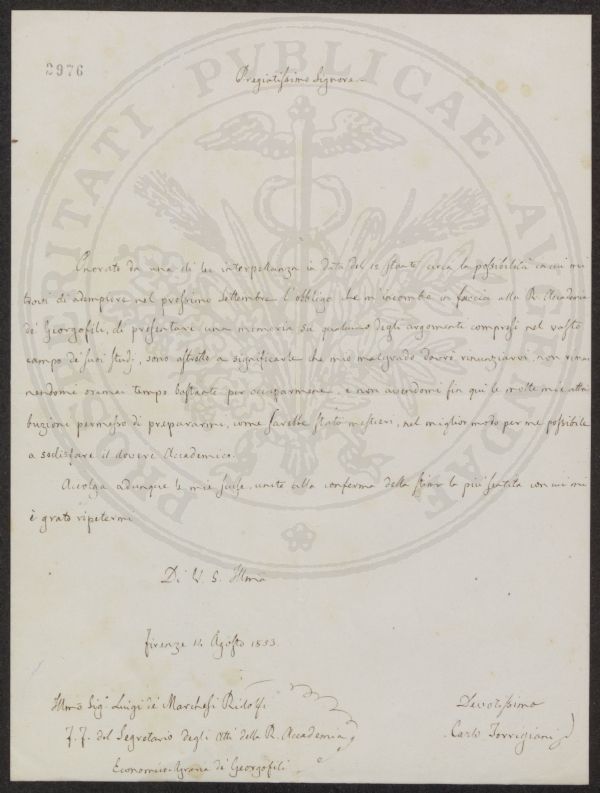 2976
PROSPERITATI PUBLICAE AUGENDAE
Pregiatissimo Signore
Onorato da una di lei interpellanza in data del 12 stante circa la possibilità in cui mi
trovi di adempiere nel prossimo Settembre l'obbligo che m'incombe in faccia alla R. Accademia
de' Georgofili, di presentare una memoria su qualcuno degli argomenti compresi nel vasto
campo de' suoi studj, sono astretto a significarle che mio malgrado dovrò rinunziarvi, non rima
nendomi oramai tempo bastante per occuparmene, e non avendomi fin qui le molte mie attri
buzioni permesso di prepararmi, come sarebbe stato mestieri, nel miglior modo per me possibile
a sodisfare il dovere Accademico.
Accolga adunque le mie scuse, unite alla conferma della stima la più sentita con cui mi
è grato ripetermi
Di V. S. Illma
Firenze 14 Agosto 1853
Illmo Sig. Luigi de' Marchesi Ridolfi
F. F. del Segretario degli Atti della R. Accademia
Economico-Agraria de' Georgofili
Devotissimo
Carlo Torrigiani